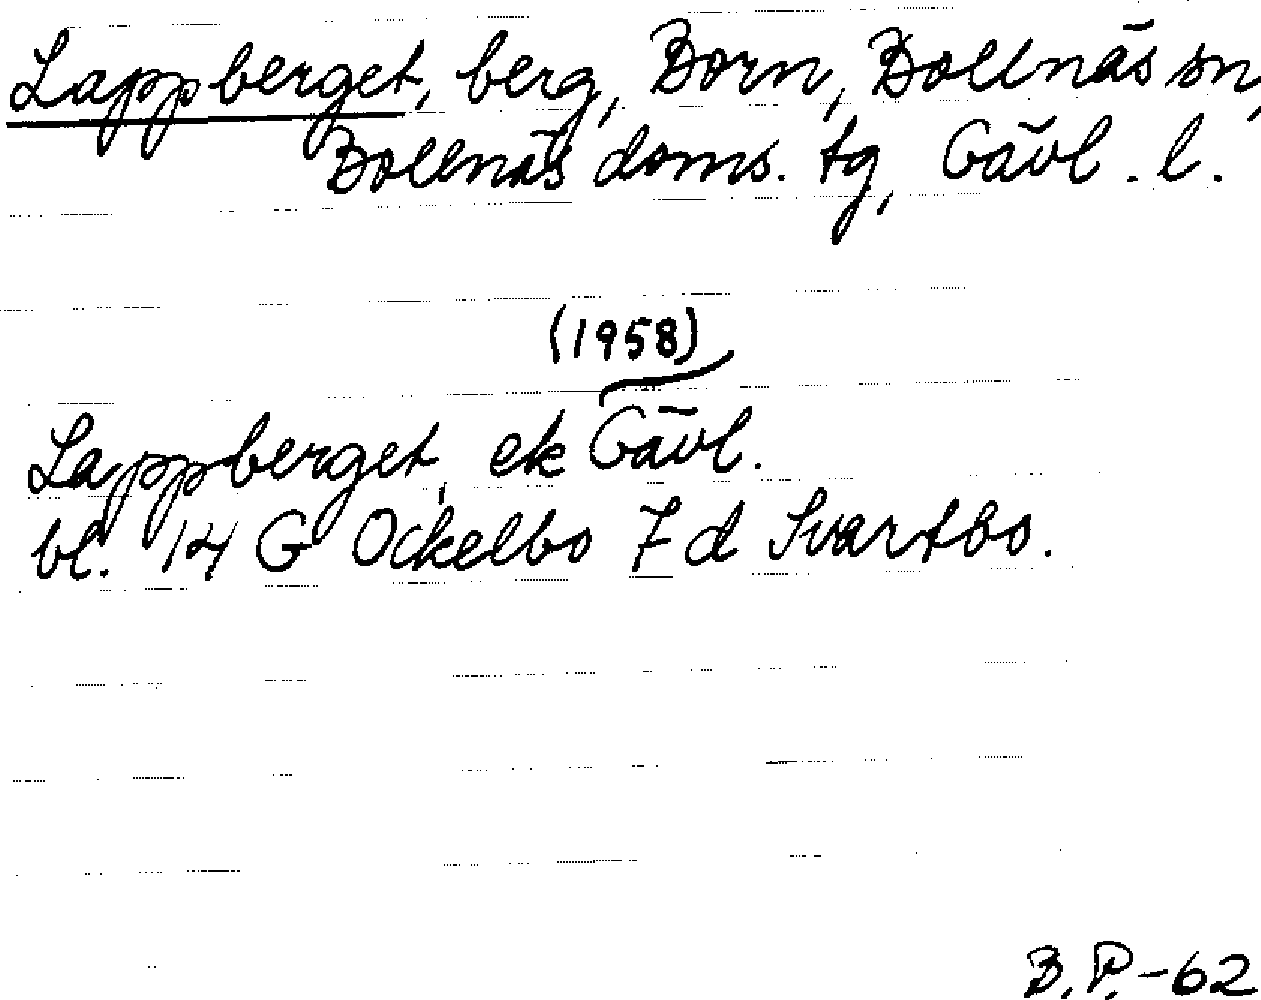 Lappberget, berg, Born, Bollnäs sn,
Bollnäs doms. tg, Gävl. l.
(1958)
Lappberget, ek Gävl.
bl. 14 G Ockelbo 7 d Svartbo.
B.P.-62